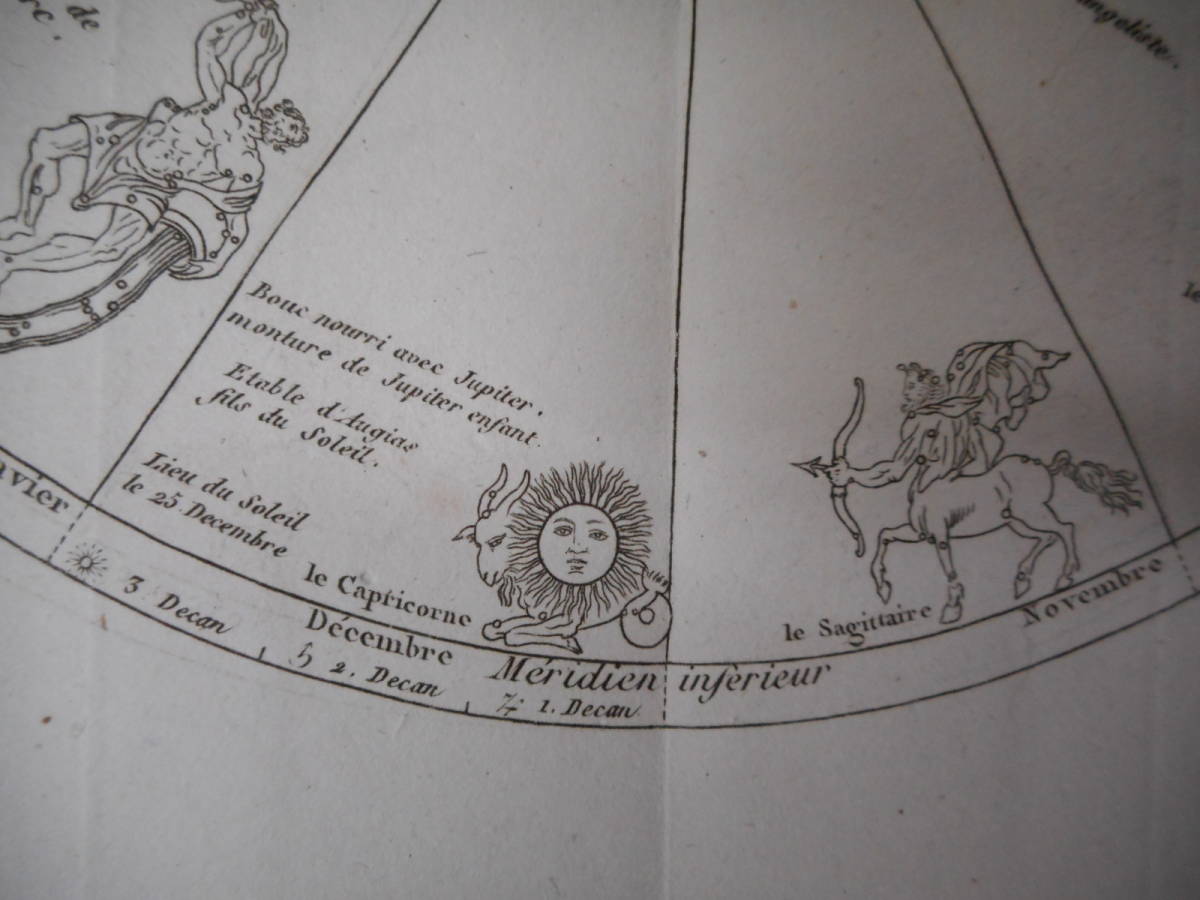 de
angeliste.
Bouc nourri avec Jupiter.
monture de Jupiter enfant.
Etable d'Augias
fils du Soleil.
Lieu du Soleil
le 25 Decembre
le Capricorne
le Sagittaire
Novembre
Décembre
Méridien inférieur
3 Decan
2. Decan
1. Decan
vier
le